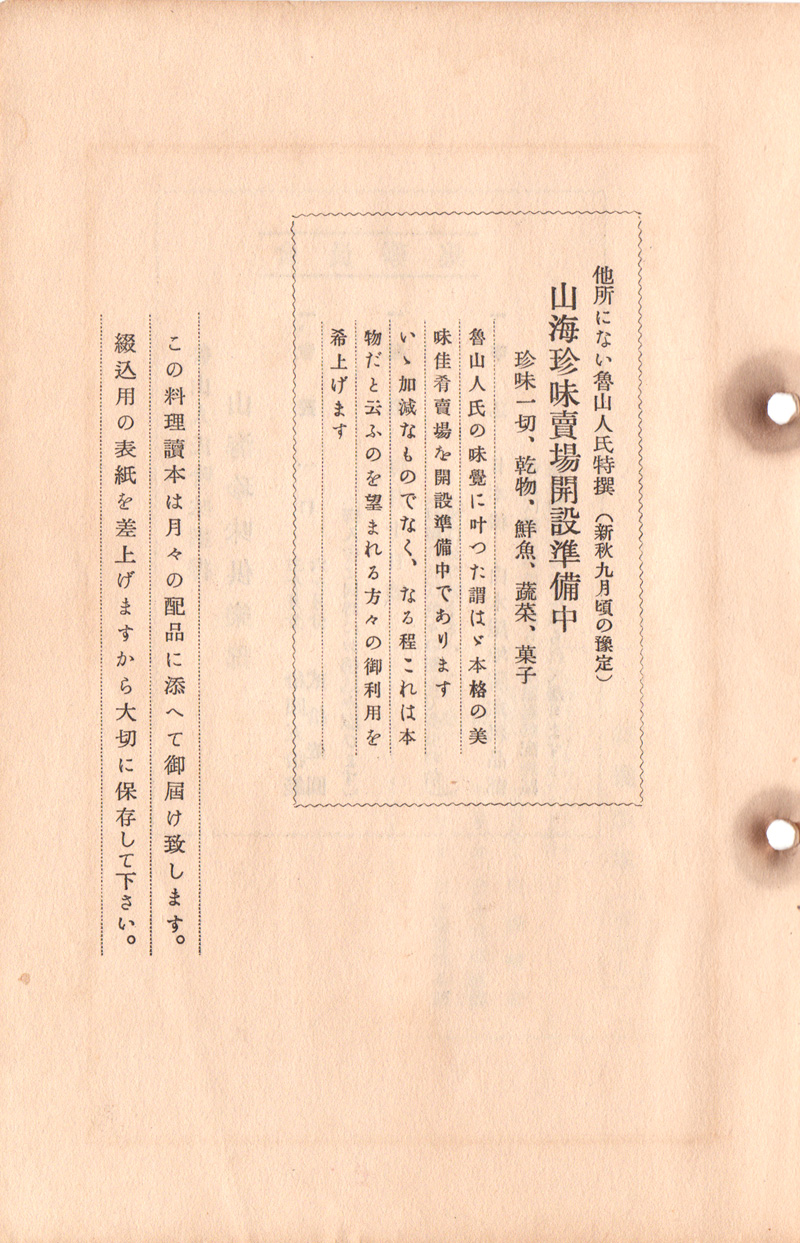 他所にない魯山人氏特撰（新秋九月頃の豫定）
山海珍味賣場開設準備中
珍味一切、乾物、鮮魚、蔬菜、菓子
魯山人氏の味覺に叶つた謂はゞ本格の美
味佳肴賣場を開設準備中であります
いゝ加減なものでなく、なる程これは本
物だと云ふのを望まれる方々の御利用を
希上げます
この料理讀本は月々の配品に添へて御屆け致します。
綴込用の表紙を差上げますから大切に保存して下さい。